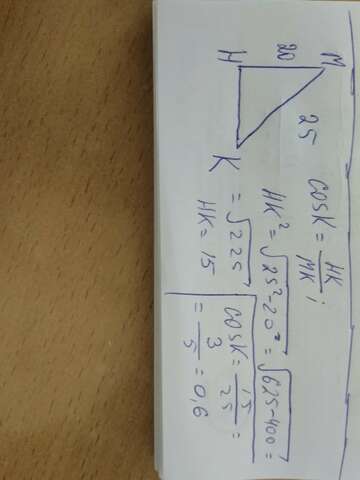 M
20
H
25
K
cosK = HK/MK;
HK² = √25²-20² = √625-400 =
= √225
HK = 15
cosK = 15/25 =
= 3/5 = 0,6